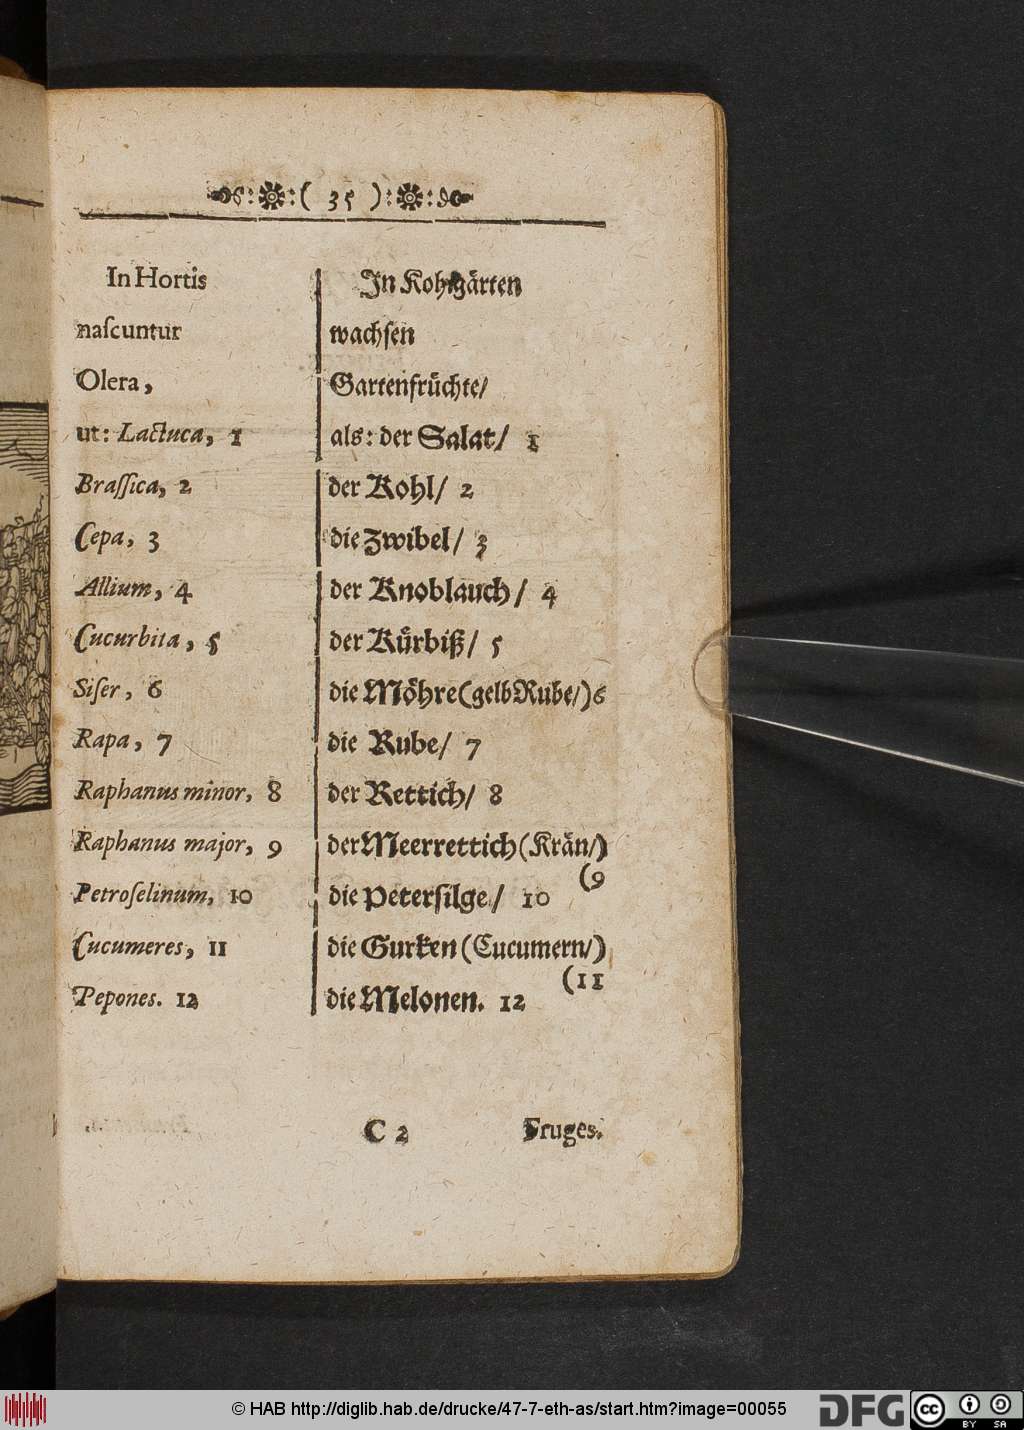 ( 35 )
In Hortis
naſcuntur
Olera,
ut: Lactuca, 1
Braſſica, 2
Cepa, 3
Allium, 4
Cucurbita, 5
Siſer, 6
Rapa, 7
Raphanus minor, 8
Raphanus major, 9
Petroſelinum, 10
Cucumeres, 11
Pepones. 12
In Kohlgärten
wachſen
Gartenfrüchte/
als: der Salat/ 1
der Kohl/ 2
die Zwibel/ 3
der Knoblauch/ 4
der Kürbiß/ 5
die Möhre (gelb Rube/) 6
die Rube/ 7
der Rettich/ 8
der Meerrettich (Krän/)
(9
die Peterſilge/ 10
die Gurken (Cucumern/)
(11
die Melonen. 12
C 2 Fruges.
© HAB http://diglib.hab.de/drucke/47-7-eth-as/start.htm?image=00055
DFG
cc
BY SA